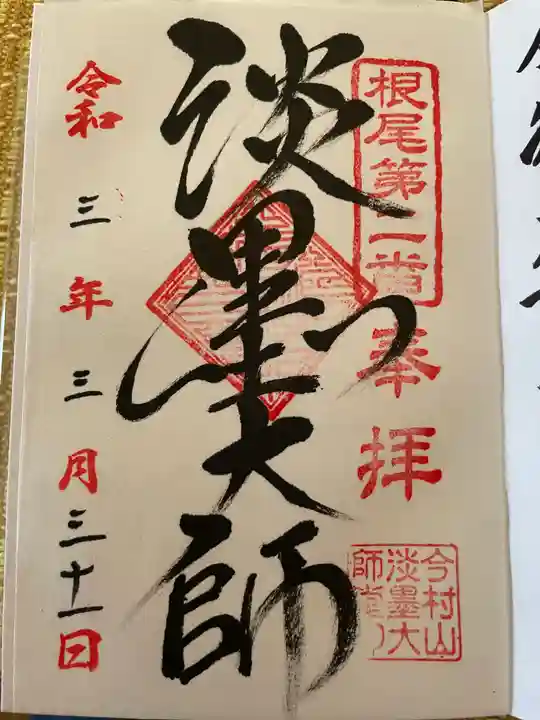 根尾第二番
奉拝
淡墨大師
令和三年三月三十一日
今村山
淡墨大
師堂